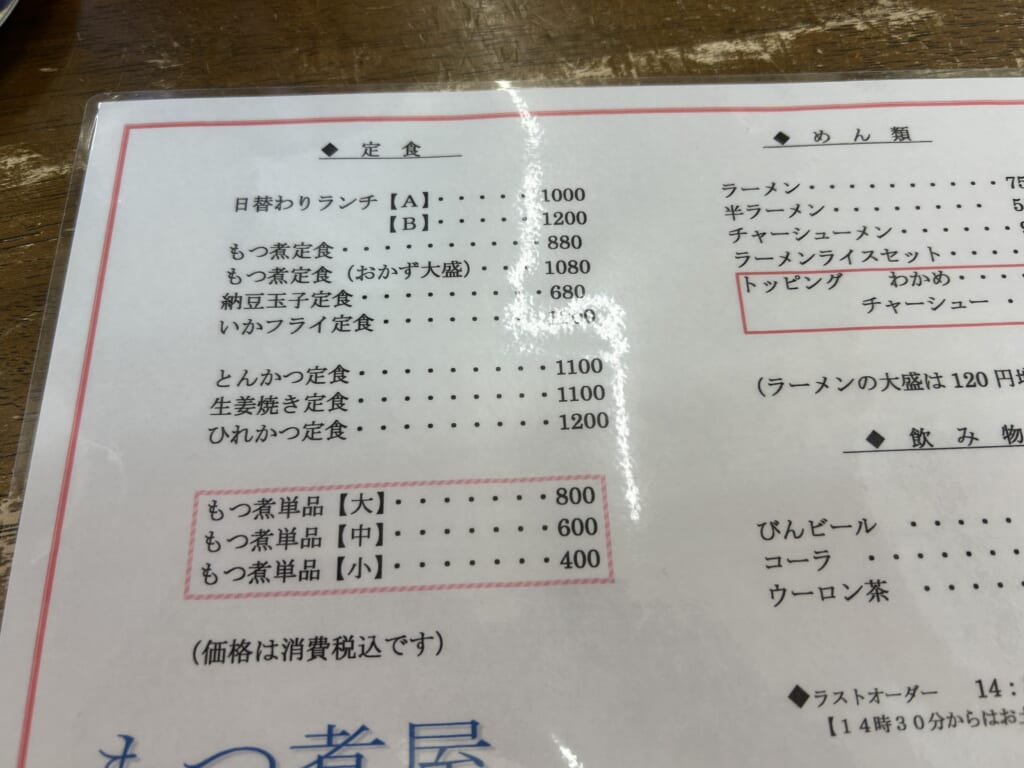 ◆ 定 食
日替わりランチ【A】・・・・・1000
【B】・・・・・1200
もつ煮定食・・・・・・・・・・880
もつ煮定食（おかず大盛）・・・1080
納豆玉子定食・・・・・・・・・680
いかフライ定食・・・・・・・・
とんかつ定食・・・・・・・・・1100
生姜焼き定食・・・・・・・・・1100
ひれかつ定食・・・・・・・・・1200
もつ煮単品【大】・・・・・・・800
もつ煮単品【中】・・・・・・・600
もつ煮単品【小】・・・・・・・400
（価格は消費税込です）
もつ煮屋
◆ め ん 類
ラーメン・・・・・・・・・・75
半ラーメン・・・・・・・・・5
チャーシューメン・・・・・・
ラーメンライスセット・・・・
トッピング わかめ・・・・
チャーシュー・・
（ラーメンの大盛は120円
◆ 飲 み 物
びんビール ・・・・・
コーラ ・・・・・・・
ウーロン茶 ・・・・・
◆ラストオーダー 14：
【１４時３０分からはお